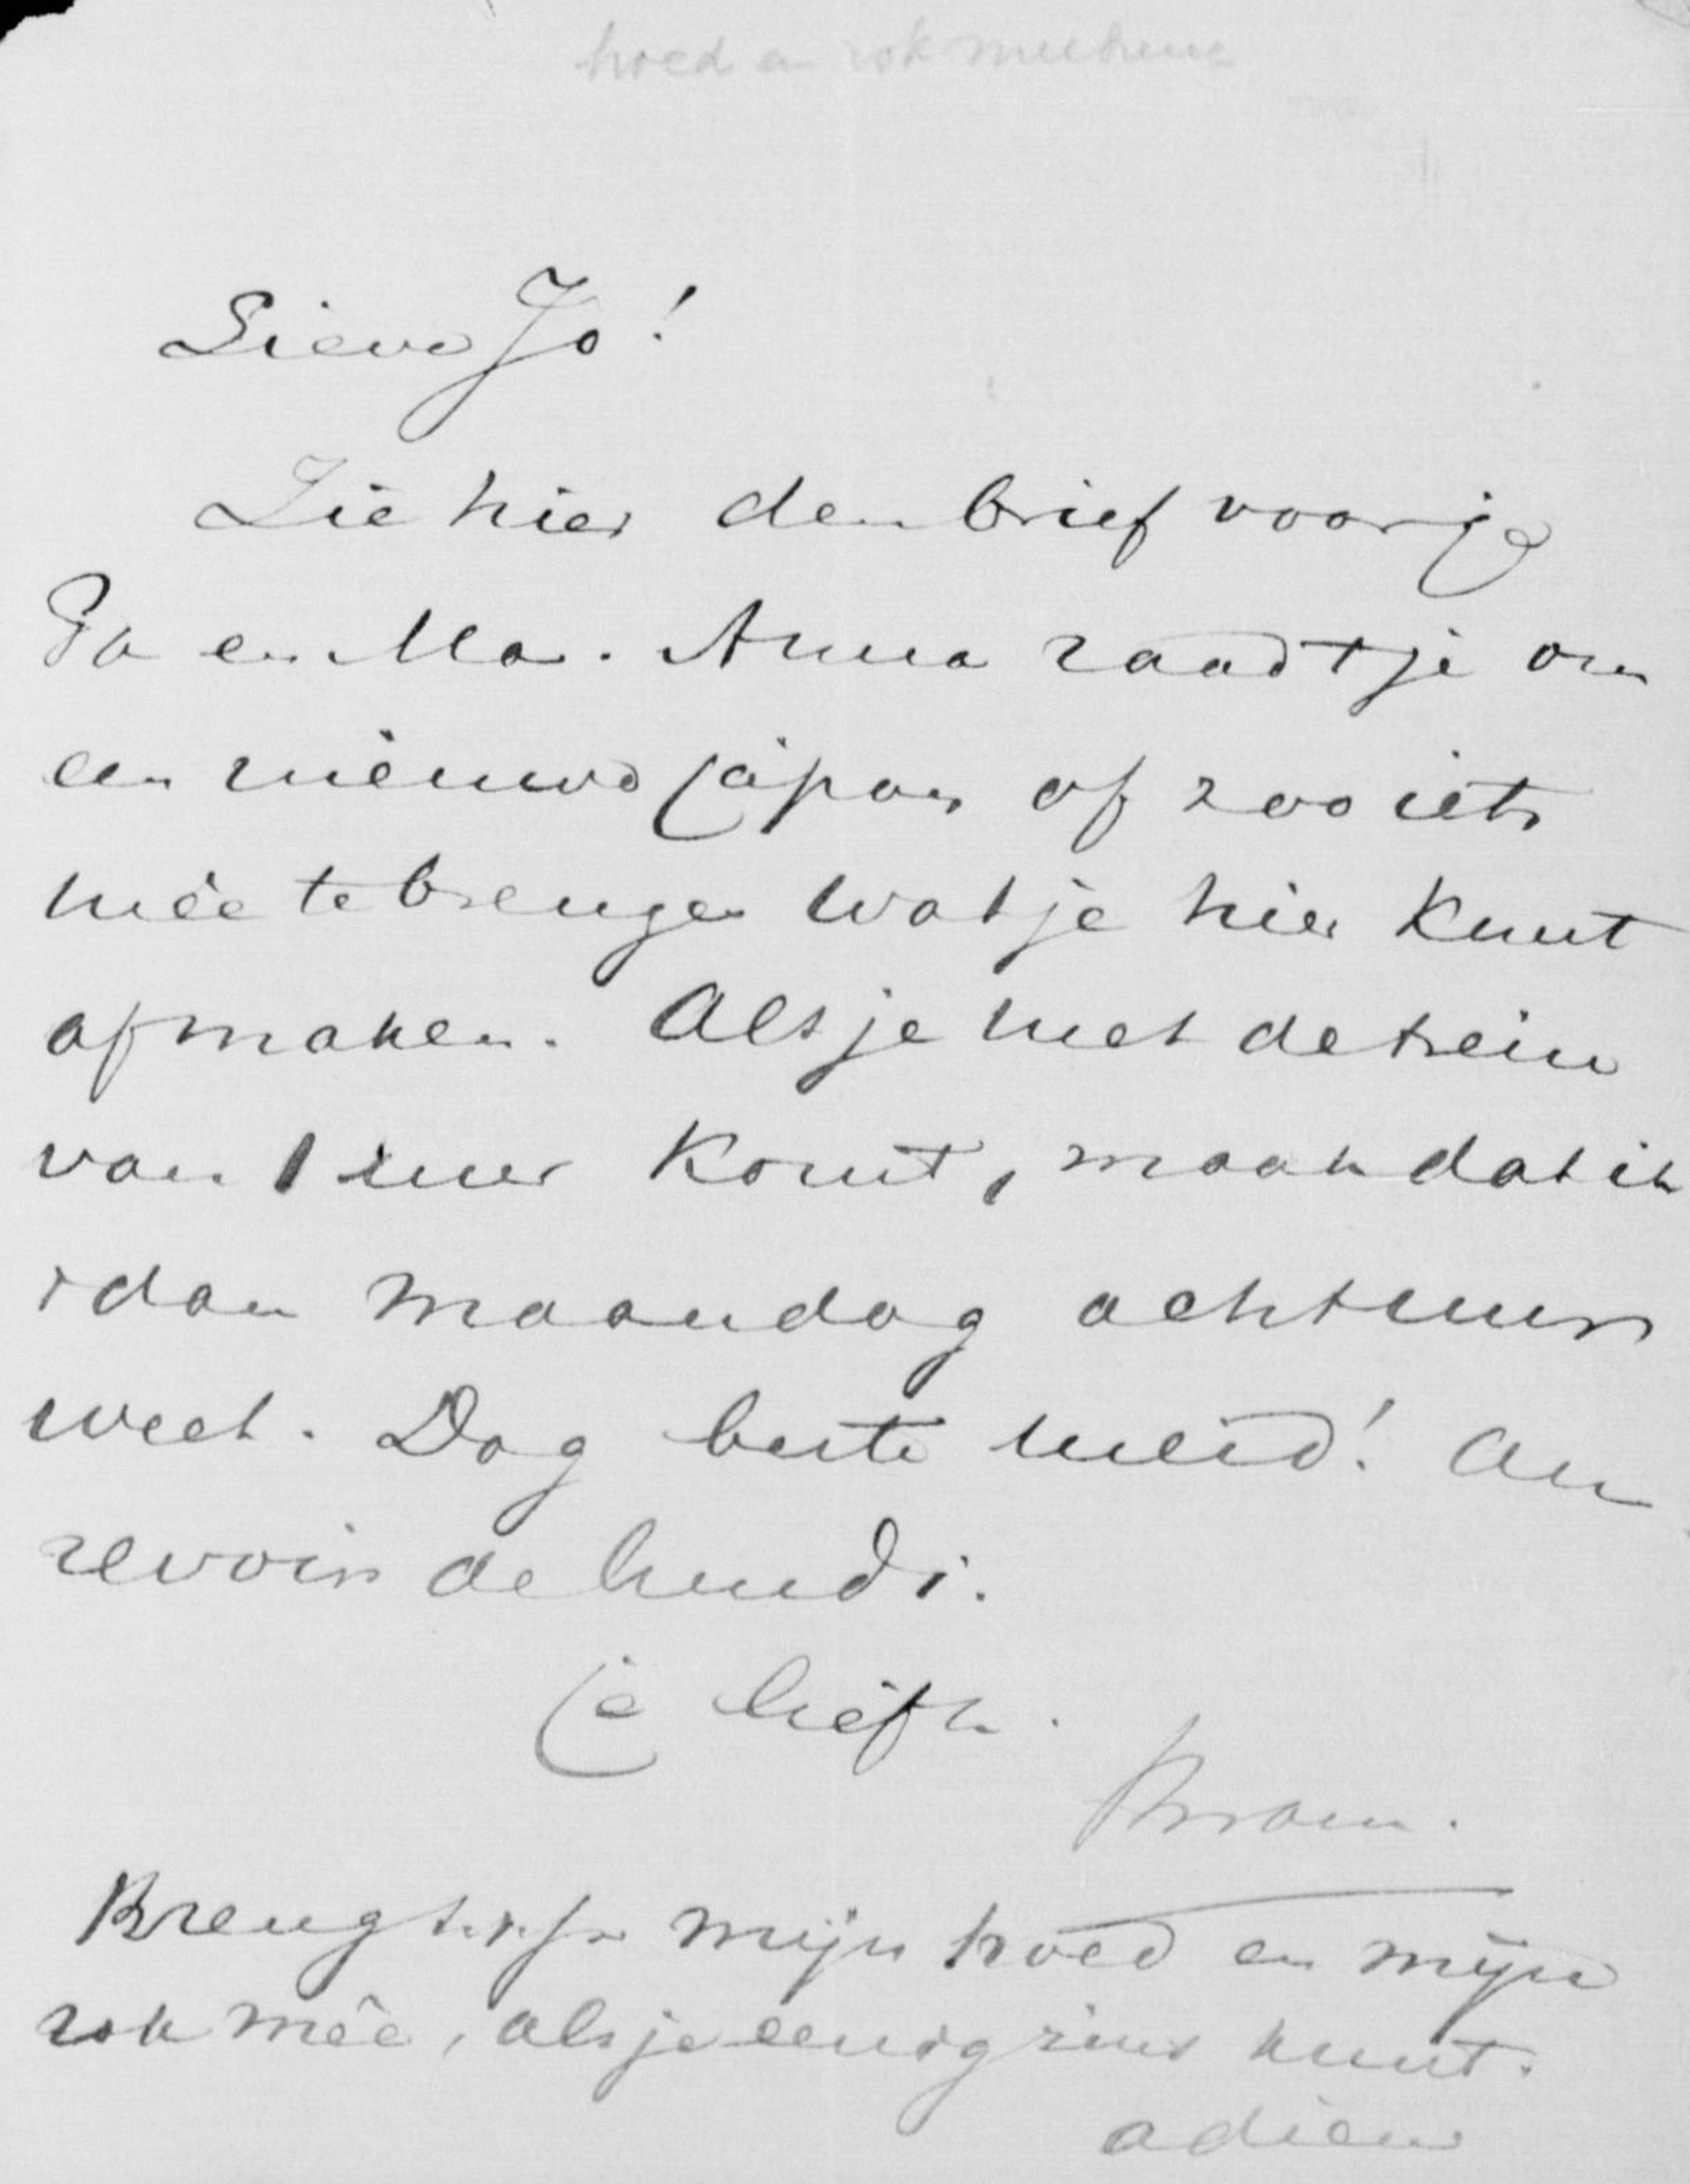 hoed en rok meebreng
Lieve Jo!
Zie hier den brief voor je
Pa en Ma. Anna raadt je om
een nieuwe japon of zoo iets
meê te brengen wat je hier kunt
afmaken. Als je met de trein
van 1 uur komt, maak dat ik
't dan maandag acht uur
weet. Dag beste meid! Au
revoir de lundi.
je liefh.
Bram.
Breng s.v.p. mijn hoed en mijn
rok meê, als je eenigzins kunt.
adieu